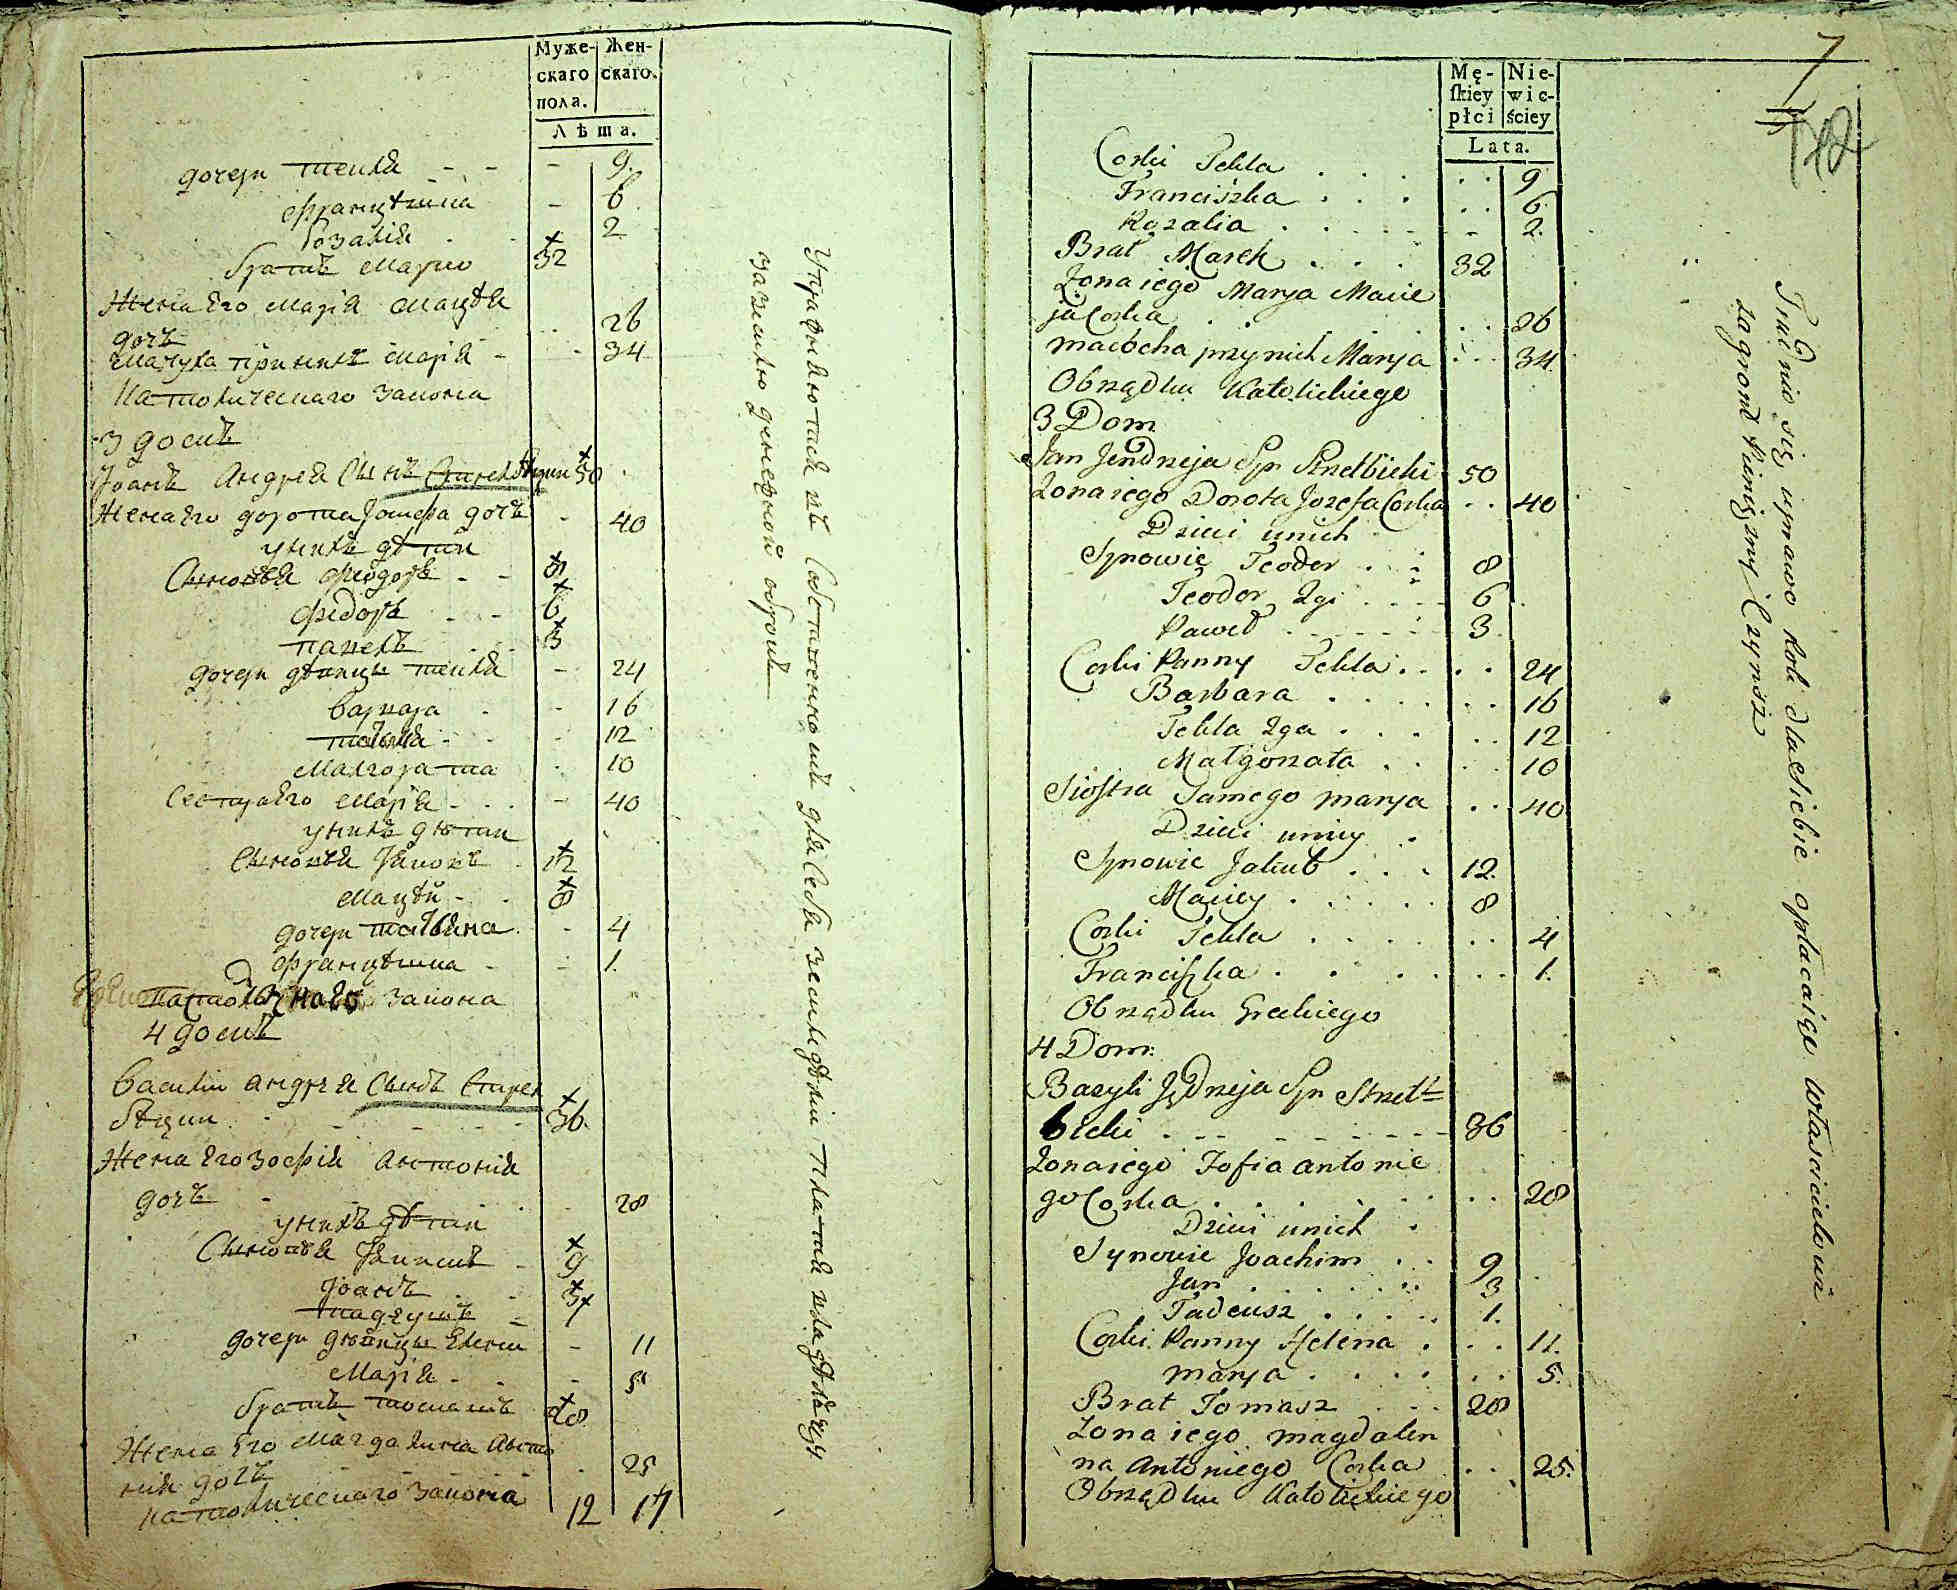 Муже-
скаго
пола.
Жен-
скаго.
Лѣта.
дочери текля - - - 9.
францѣшка - 6
розалія 2
братъ Марко 32
Жена его Марія Мацѣя
дочь 26
Мачуха при нихъ Марія - 34
Католическаго закона
3 домъ
Іоанъ Андрея Сынъ Стрелбицки 50
Жена его дорота Іозефа дочь - 40
у нихъ дѣти
Сыновья Феодоръ - - 8
Федоръ - - 6
павелъ 3
дочери дѣвицы текля - 24
варвара - 16
текля - 12
Малгората 10
Сестра его Марія - 40
у нихъ дѣти
Сыновья Яковъ 12
Мацѣй - 8
дочери текля - 4
францѣшка - 1.
закона
4 домъ
Василій андрея Сынъ Стрел
бѣцки - - - - 36.
Жена его зофія Антонія
дочь - 28
у нихъ дѣти
Сыновья Якимъ - 9
Іоанъ 3
тадеушъ - 1
дочери дѣвицы Елена - 11
Марія - 5
братъ томашъ 28
Жена его Магдалина Анто
нія дочь 25
католическаго закона
12 17
Управляются въ Собственномъ для Себя земледѣліи платя владѣльцу
за землю денежной оброкъ
7
142
Mę-
skiey
płci
Nie-
wie-
ściey
Lata.
Corki Tekla . . . . . 9
Franciszka . . . . . 6
Rozalia . . . . . 2.
Brat Marek . . . 32
Zona iego Marya Macie
ja Corka . . . . . 26
macocha przy nich Marya . . . 34
Obrządku Katolickiego
3 Dom
Jan Jendrzeja Syn Strzelbicki 50
Zona iego Dorota Jozefa Corka . . 40
Dzieci unich
Synowie Teodor . . 8
Teodor 2gi . . . 6
Paweł . . . . . 3
Corki Panny Tekla . . . . 24
Barbara . . . . . . 16
Tekla 2ga . . . . . 12
Małgorzata . . . . 10
Siostra Samego Marya . . 40
Dzieci uniey .
Synowie Jakub . . . 12.
Maciey . . . . . 8
Corki Tekla . . . . . . 4
Franciszka . . . . . . 1.
Obrządku Greckiego
4 Dom:
Bazyli Jędrzeja Syn Strzel=
bicki . - - - - - - 36
Zona iego Zofia Antonie
go Corka . . . . . . . 28
Dzieci unich .
Synowie Joachim . . 9
Jan . . . . . . 3
Tadeusz . . . . . 1.
Corki Panny Helena . . . 11.
Marya . . . . . . 5.
Brat Tomasz . . . 28
Zona iego Magdalen
na Antoniego Corka . . 25.
Obrządku Katolickiego
Trudnią się uprawą Roli dla siebie opłacaiąc właścicielowi
za grunt Pieniężny Czynsz